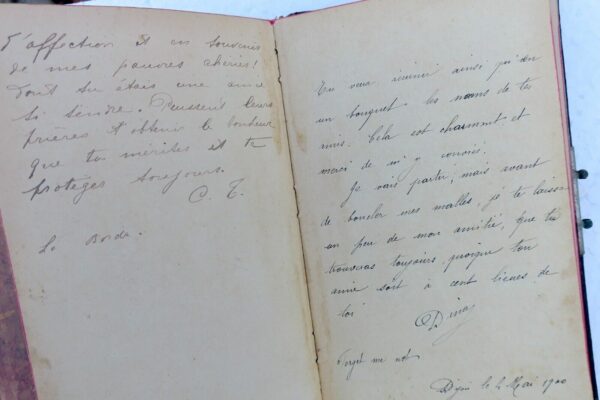 d'affection et en souvenir
de mes pauvres chéries!
dont tu étais une amie
si tendre. Puissent leurs
prières t'obtenir le bonheur
que tu mérites et te
protéger toujours.
C. T.
La Borde.
Tu veux réunir ainsi qu'en
un bouquet les noms de tes
amis. Cela est charmant et
merci de m'y convier.
Je vais partir, mais avant
de boucler mes malles, je te laisse
un peu de mon amitié, que tu
trouveras toujours, quoique ton
amie soit à cent lieues de
toi
Forget me not
Dijon le 4 Mai 1900